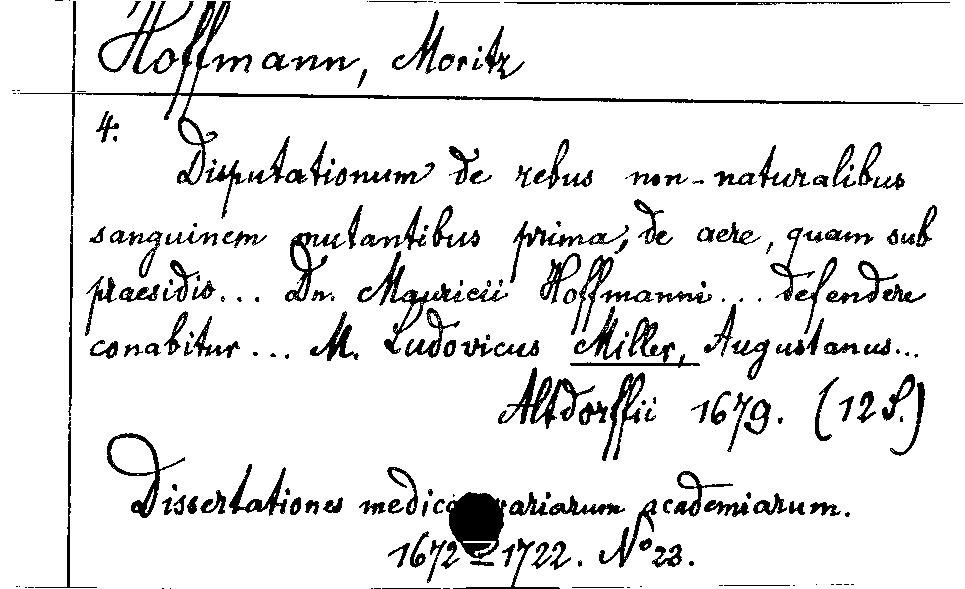 Hoffmann, Moritz
4:
Disputationum de rebus non-naturalibus
sanguinem mutantibus prima, de aere, quam sub
praesidio... Dn. Mauricii Hoffmanni... defendere
conabitur... M. Ludovicus Miller, Augustanus...
Altdorffii 1679. (12 S.)
Dissertationes medicae variarum academiarum.
1672 - 1722. No 23.